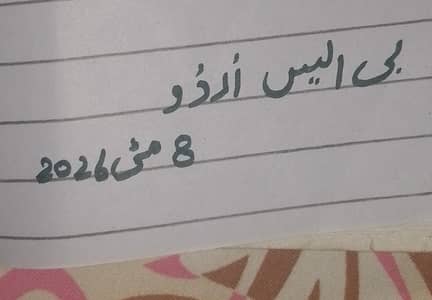 بی ایس اُردُو
8 مئی 2026